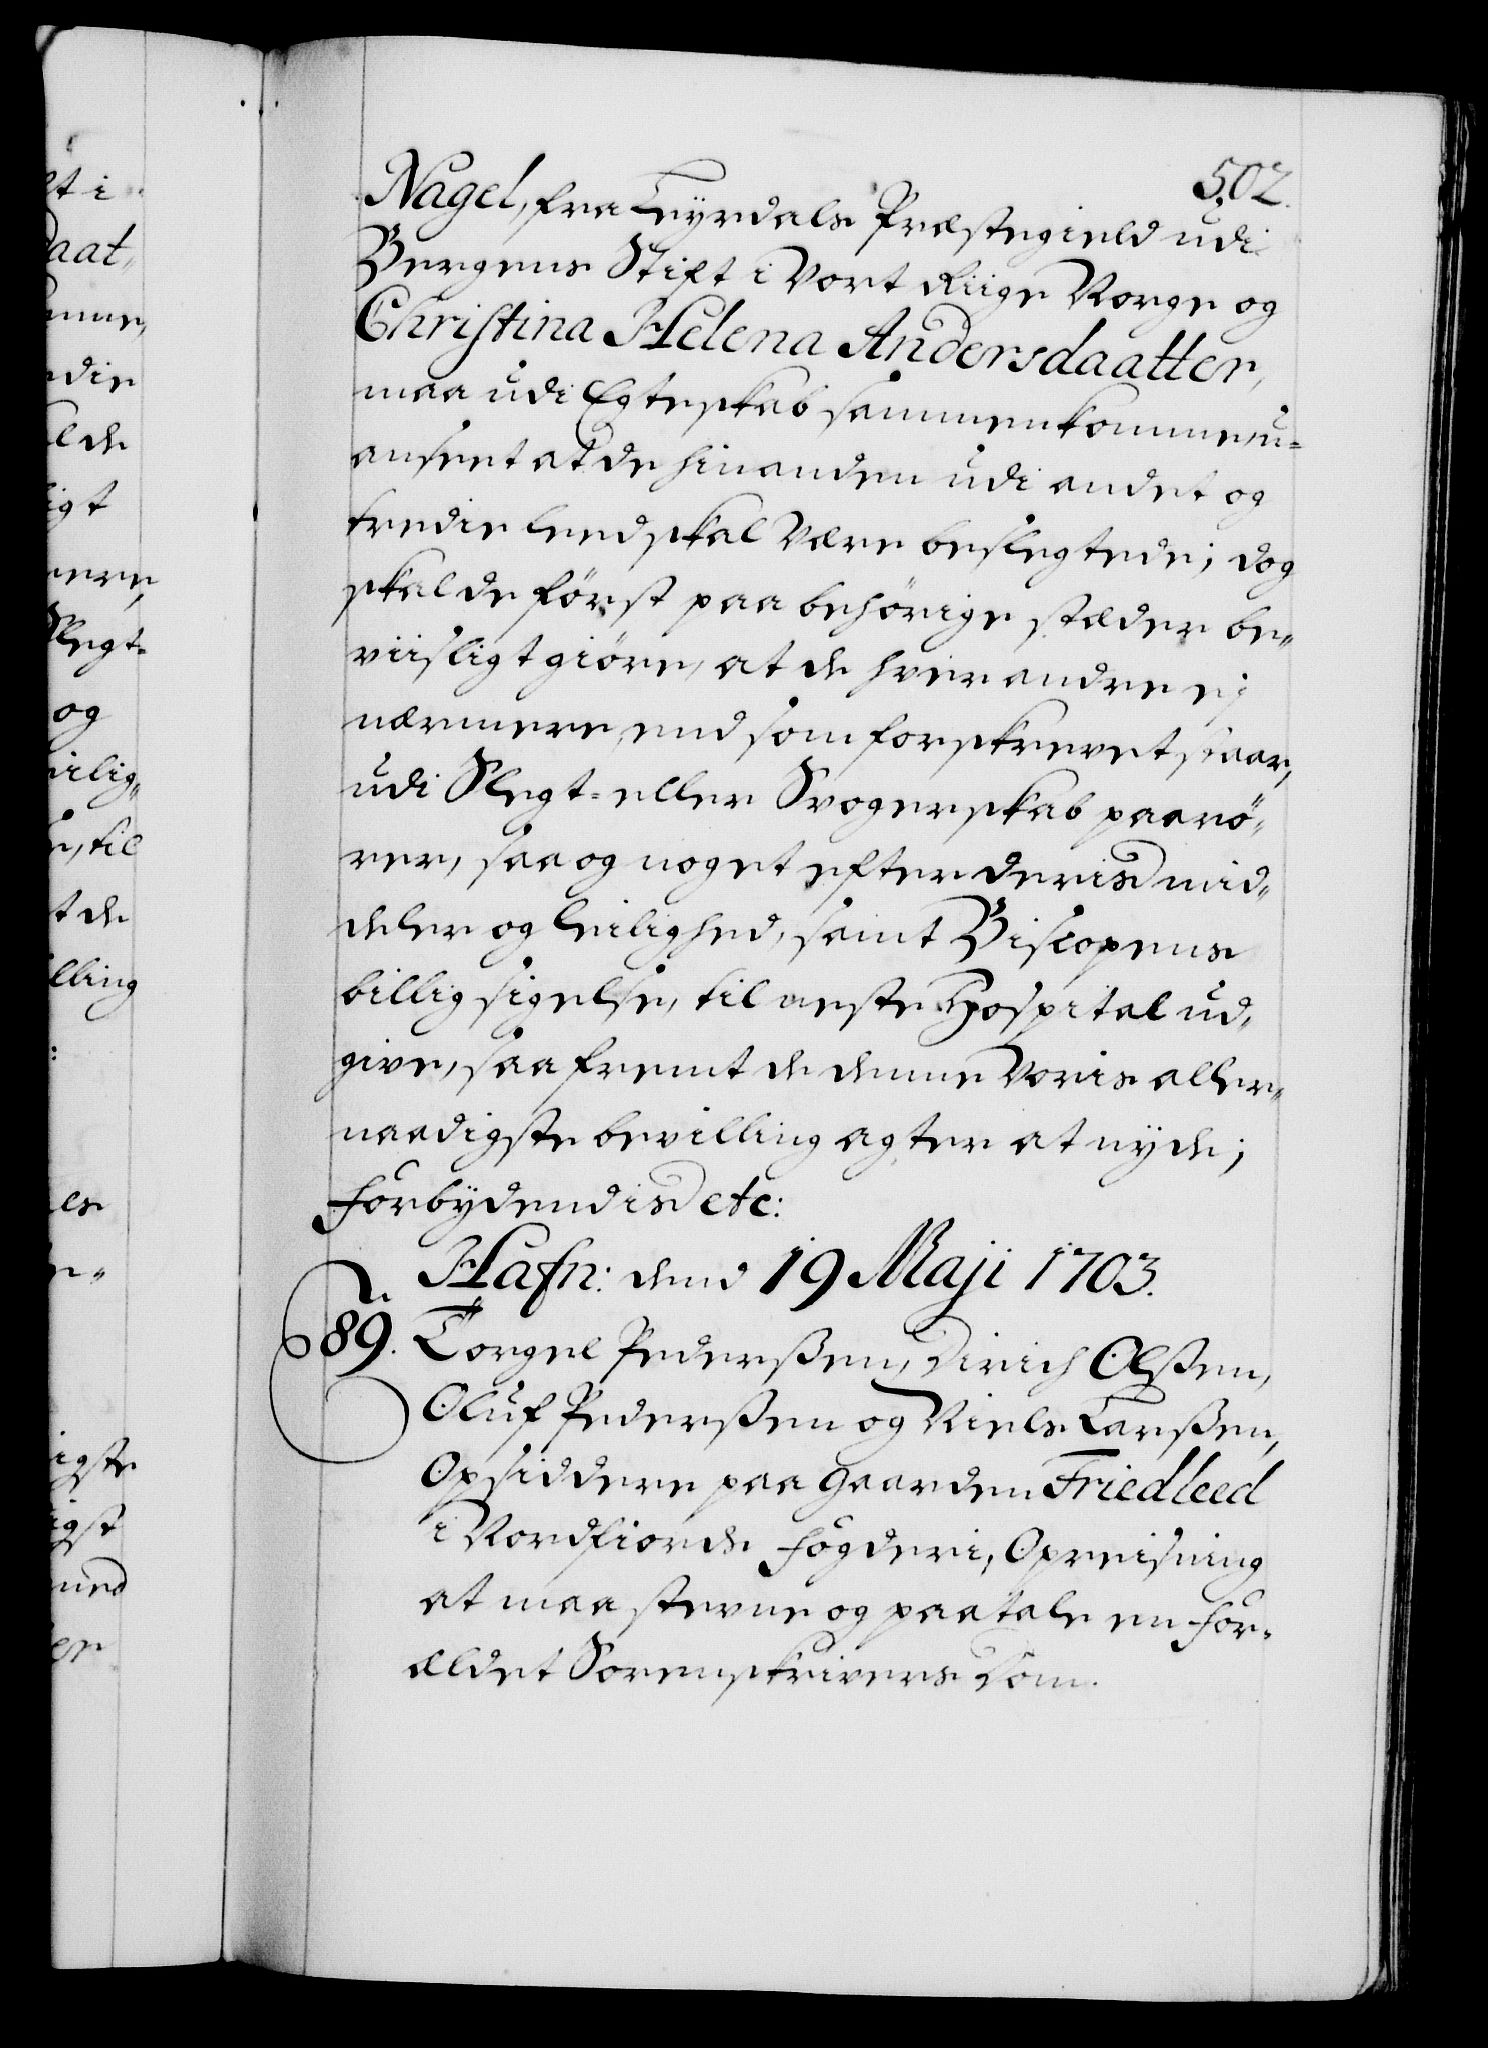 502.
Nagel, fra Leyrdals Præstegield udi
Bergens Stift i Vort Riige Norge og
Christina Helena Andersdaatter,
maa udi Egteskab sammenkomme, u-
anseet at de hinanden udi andet og
tredie leed skal være beslegtede; dog
skal de først paa behörige stæder be-
viisligt giöre, at de hver andre ej
nærmere, end som forskrevet staar,
udi Slegt- eller Svogerskab paarö-
rer, saa og noget efter deris mid-
deler og leilighed, samt Biscopens
billig sigelse, til neste Hospital ud-
give, saa fremt de denne Voris aller-
naadigste bevilling agter at nyde;
Forbydendis etc:
Hafn: dend 19 Maji 1703.
89. Torgel Pederßen, Dirich Olßen,
Oluf Pederßen og Niels Larßen,
Opsiddere paa Gaarden Friedleed
i Nordfiords Fogderi, Opreisning
at maa stevne og paatale en for-
ældet Sorenskrivers Dom.
lt i
daat-
nne,
edie
l de
igt
nere,
Slegt-
og
eilig-
e, til
t de
lling
els
igste
igst
med
er